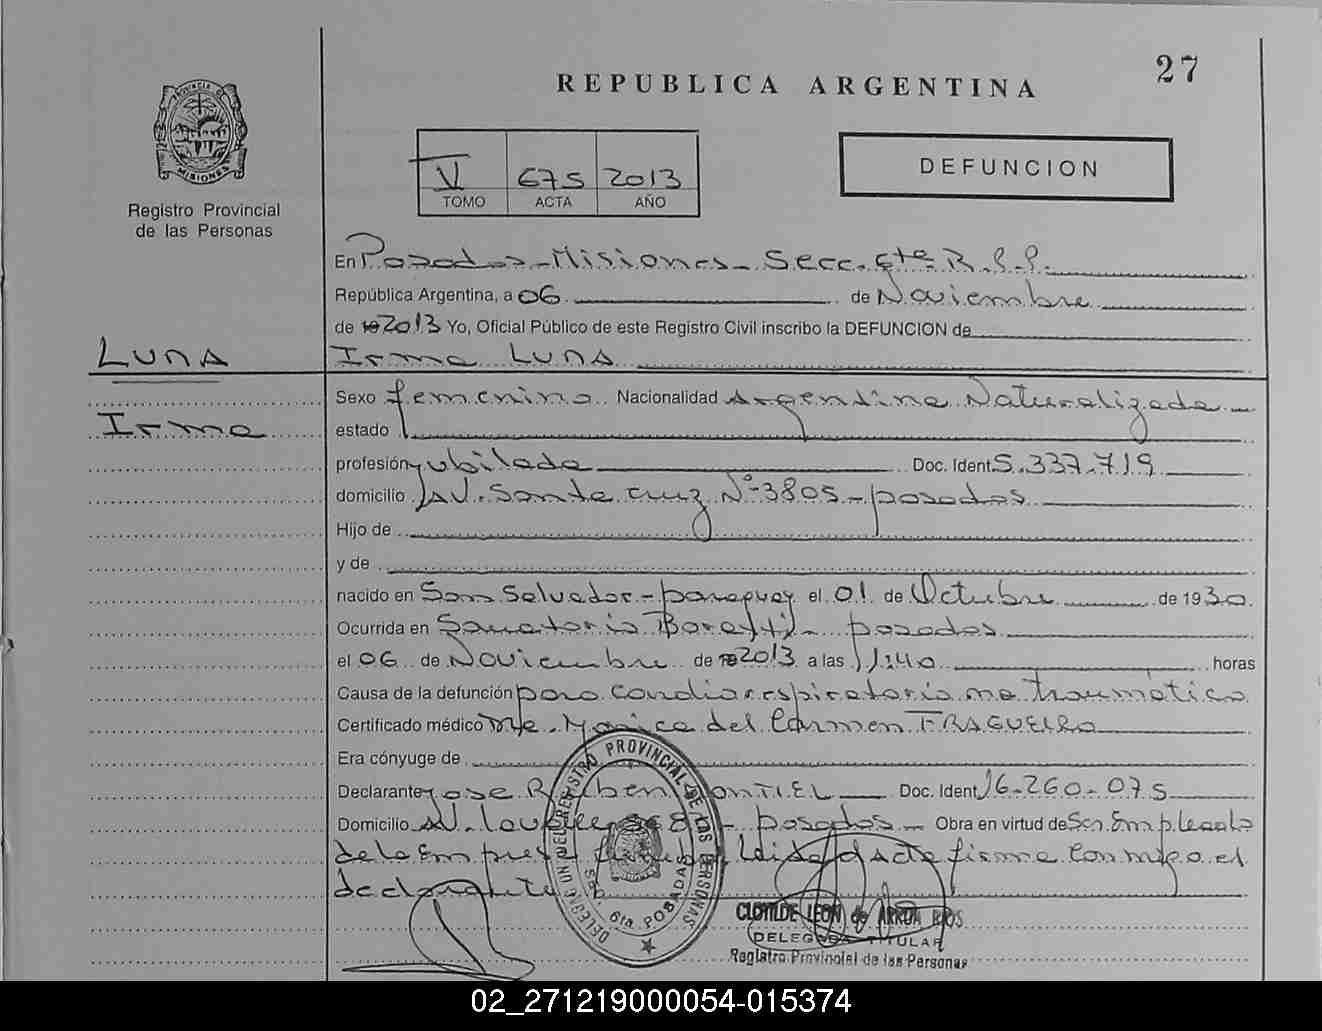 27
REPUBLICA ARGENTINA
PROVINCIA DE
MISIONES
Registro Provincial
de las Personas
V 675 2013
TOMO ACTA AÑO
DEFUNCION
En Posadas-Misiones-Secc. 6ta R.P.P.
República Argentina, a 06 de Noviembre
de 2013 Yo, Oficial Público de este Registro Civil inscribo la DEFUNCION de
LUNA Irma LUNA
Irma
Sexo femenino Nacionalidad Argentina Naturalizada
estado
profesión jubilada Doc. Ident. 5.337.719
domicilio AV. Santa cruz Nº 3805 - posadas
Hijo de
y de
nacido en San Salvador - paraguay el 01 de Octubre de 1930
Ocurrida en Sanatorio Boratti - posadas
el 06 de Noviembre de 2013 a las 11:40 horas
Causa de la defunción paro cardiorrespiratorio no traumático
Certificado médico Monica del Carmen FRAGUEIRO
Era cónyuge de
Declarante jose Ruben MONTIEL Doc. Ident. 16-260-075
Domicilio AV. - posadas - Obra en virtud de Ser Empleado
de la Empresa Leida el acta firma Conmigo el
declarante
DELEGACION DEL REGISTRO PROVINCIAL DE LAS PERSONAS
SEC. 6ta POSADAS
CLOTILDE LEON de ARRUA RIOS
DELEGADA TITULAR
Registro Provincial de las Personas
02_271219000054-015374